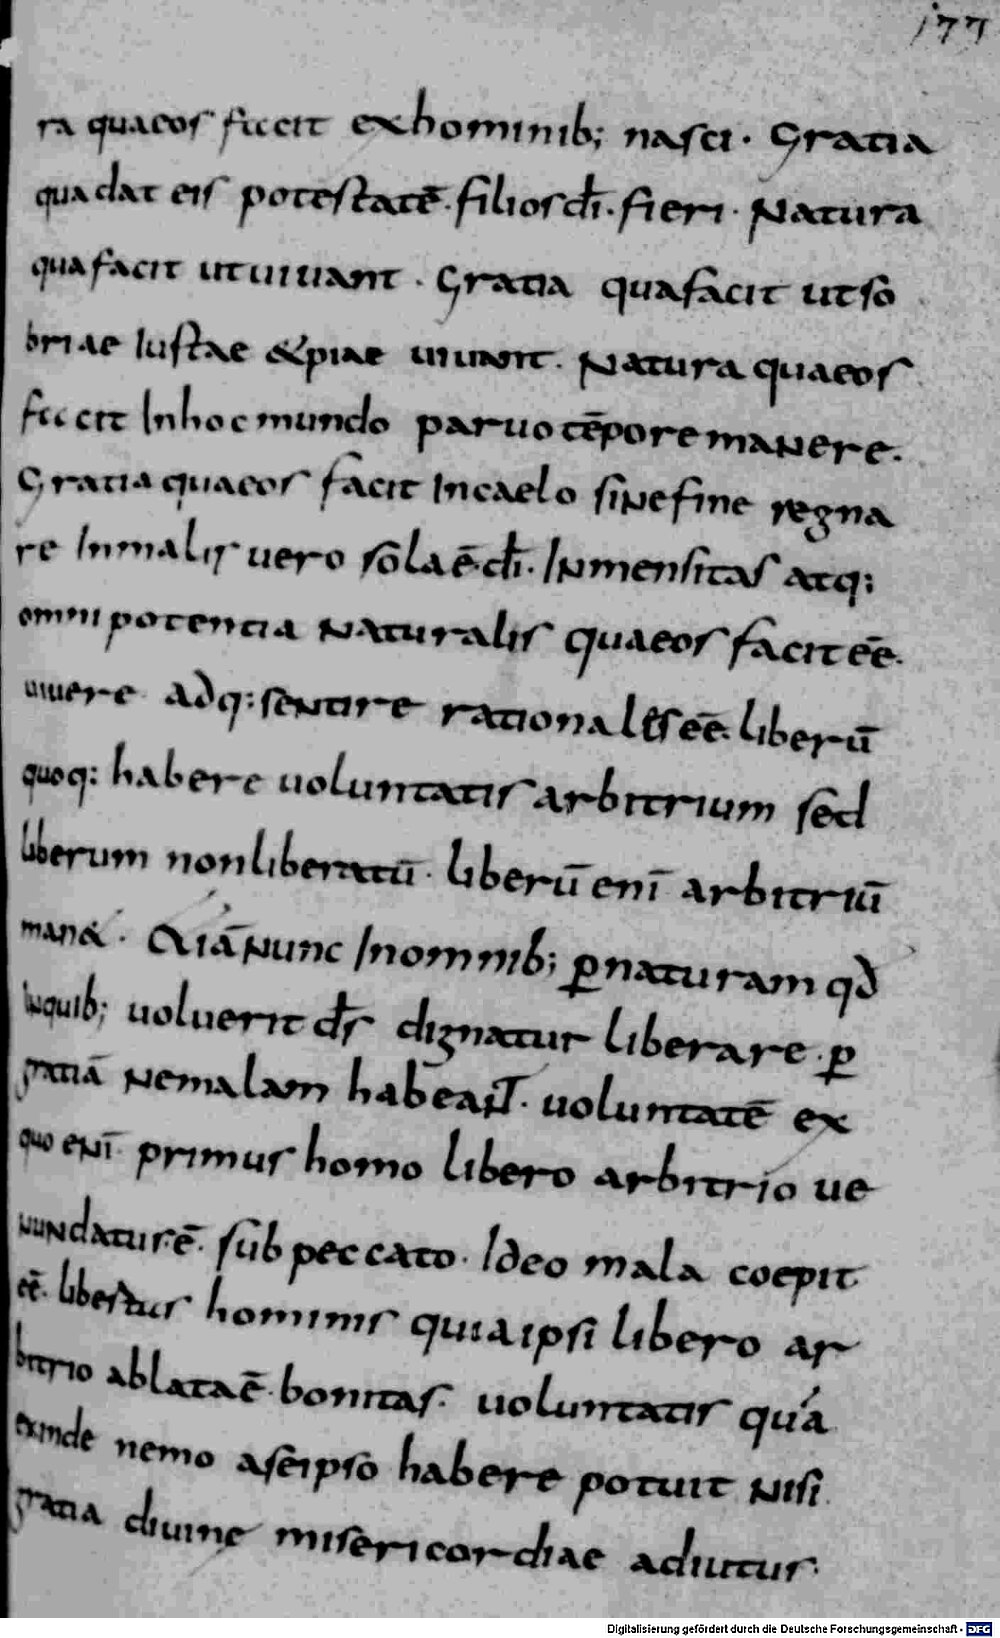 177
ra quaeos feccit exhominib; nasci. Gratia
qua dat eis potestatē. filios dī. fieri. Natura
qua facit ut uiuant. Gratia qua facit ut so
briae Iustae &piae uiuant. Natura quaeos
feccit Inhoc mundo paruo tēpore manere.
Gratia quaeos facit Incaelo sine fine regna
re Inmalis uero sola ē. dī. Inmensitas atq;
omnipotentia naturalis quaeos facit eē.
uiuere adq; sentire rationales eē. liberū
quoq; habere uoluntatis arbitrium sed
liberum non liberatū. liberū enī arbitriū
man&. &iā nunc Inominib; ꝑnaturam qđ
Inquib; uoluerit dś dignatur liberare. ꝑ
gratiā ne malam habeant. uoluntatē ex
quo enī primus homo libero arbitrio ue
nundatur ē. sub peccato. Ideo mala coepit
eē. libertus hominis quia ipsi libero ar
bitrio ablata ē. bonitas. uoluntatis qua
exinde nemo aseipso habere potuit nisi
gratia diuine misericordiae adiutus.
Digitalisierung gefördert durch die Deutsche Forschungsgemeinschaft - DFG